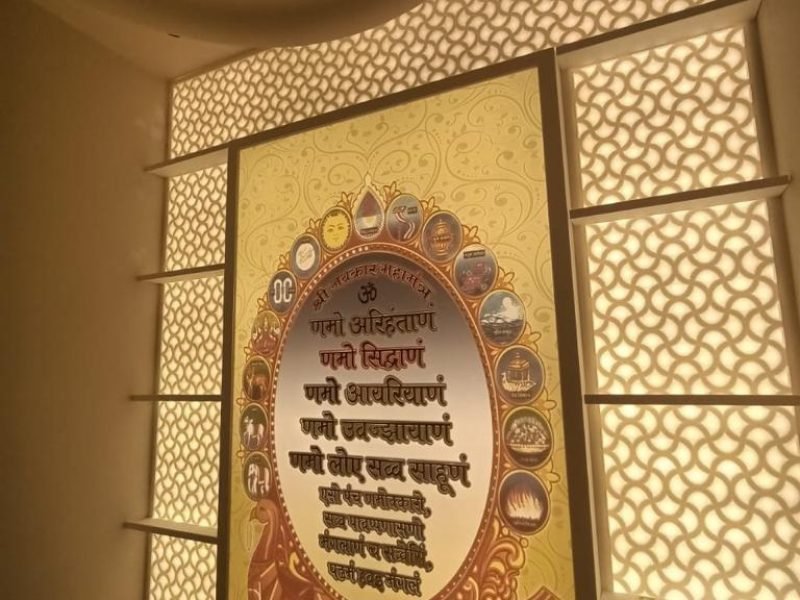 श्री नवकार महामंत्र
ॐ
णमो अरिहंताणं
णमो सिद्धाणं
णमो आयरियाणं
णमो उवज्झायाणं
णमो लोए सव्व साहूणं
एसो पंच णमोक्कारो,
सव्व पावप्पणासणो
मंगलाणं च सव्वेसिं,
पढमं हवइ मंगलं